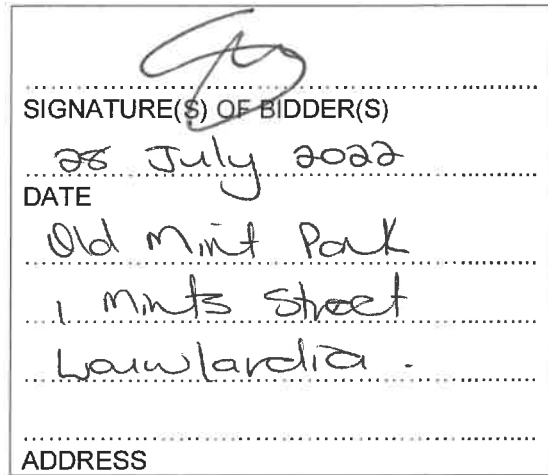 SIGNATURE(S) OF BIDDER(S)
28 July 2022
DATE
Old Mint Park
1 Mints Street
Louwlardia .
ADDRESS